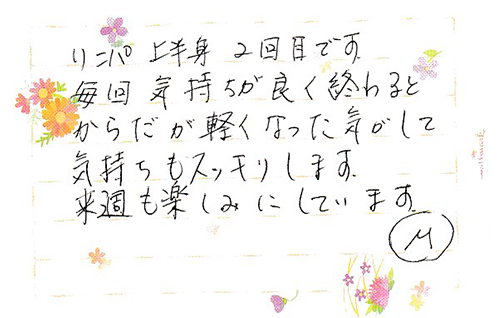 リンパ 上半身 2回目です
毎回 気持ちが良く終わると
からだが軽くなった気がして
気持ちもスッキリします.
来週も楽しみにしています.
M